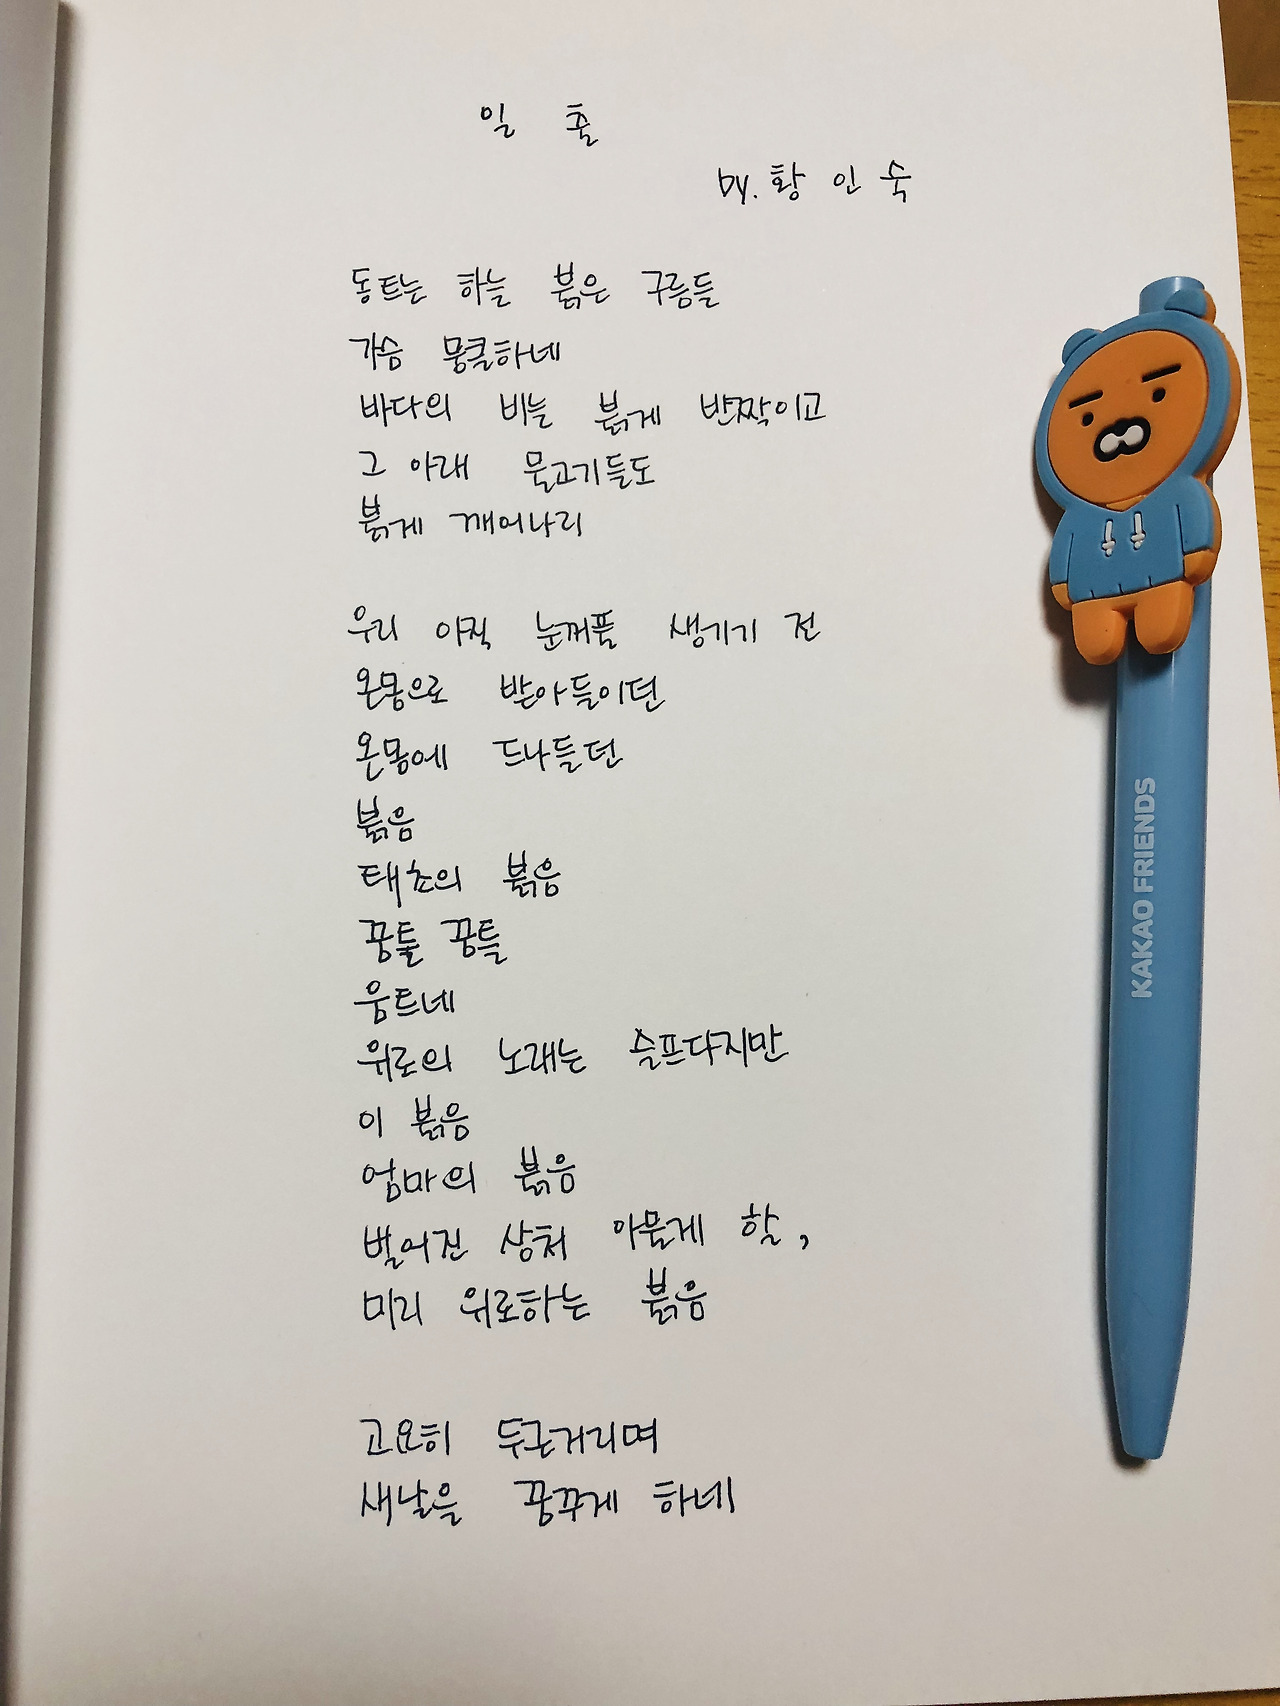 일 출
by. 황 인 숙
동트는 하늘 붉은 구름들
가슴 뭉클하네
바다의 비늘 붉게 반짝이고
그 아래 물고기들도
붉게 깨어나리
우리 아직 눈꺼풀 생기기 전
온몸으로 받아들이던
온몸에 드나들던
붉음
태초의 붉음
꿈툴 꿈틀
움트네
위로의 노래는 슬프다지만
이 붉음
엄마의 붉음
벌어진 상처 아물게 할,
미리 위로하는 붉음
고요히 두근거리며
새날을 꿈꾸게 하네
KAKAO FRIENDS